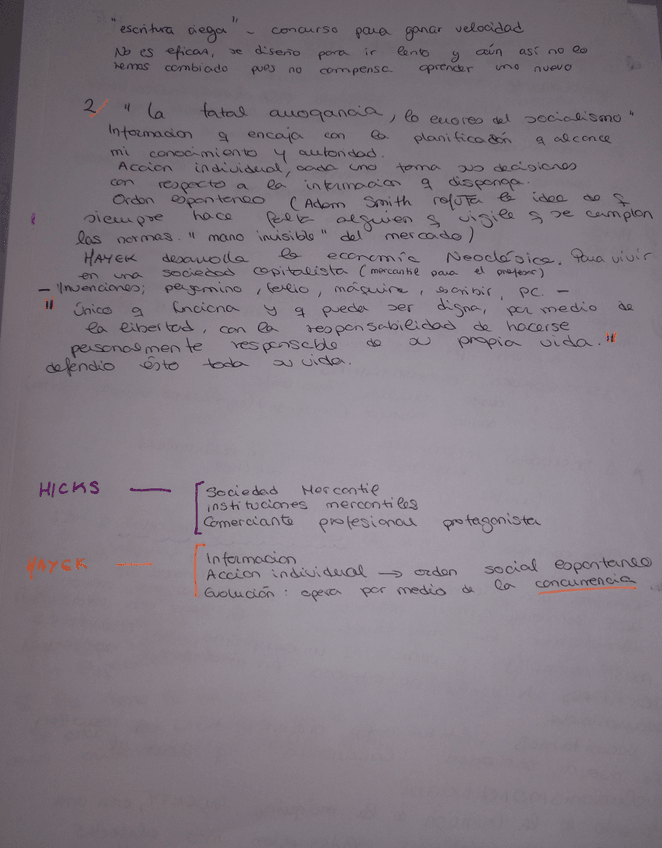 "escritura ciega" - concurso para ganar velocidad
No es eficaz, se diseño para ir lento y aún así no lo
hemos cambiado pues no compensa aprender uno nuevo
2/ "La fatal arrogancia, lo errores del socialismo"
Informacion q encaja con la planificación q alcance
mi conocimiento y autoridad.
Accion individual, cada uno toma sus decisiones
con respecto a la informacion q disponga.
Orden espontaneo (Adam Smith refuta la idea de q
siempre hace falta alguien q vigile q se cumplan
las normas. "mano invisible" del mercado)
HAYEK desarrolla la economía Neoclásica. Para vivir
en una sociedad capitalista (mercantil para el profesor)
- Invenciones; pergamino, , máquina, escribir, PC. -
" Único q funciona y q pueda ser digna, por medio de
la libertad, con la responsabilidad de hacerse
personalmente responsable de su propia vida."
defendio ésto toda su vida.
HICKS — [Sociedad Mercantil
instituciones mercantiles
Comerciante profesional protagonista
HAYEK — [Informacion
Accion individual → orden social espontaneo
Evolución: opera por medio de la concurrencia